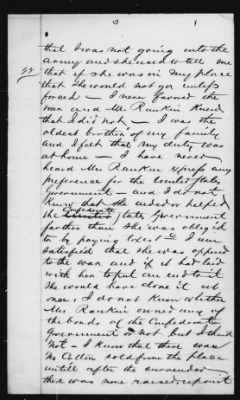 3
that I was not going into the
army and she used to tell me
that if she was in my place
that she would not go unless
forced — I never favored the
war and Mrs. Rankin knew
that I did not — I was the
oldest brother of my family
and I felt that my duty was
at home — I have never
heard Mrs Rankin express any
preference for the United States
Government — and I do not
know that she aided or helped
Confederate
the United States Government
farther than she was oblig'd
to by paying taxes — I am
satisfied that she was opposed
to the war and if it had laid
with her to put an end to it
She would have done it at
once, I do not know whether
Mrs. Rankin owned any of
the bonds of the Confederate
Government or not but I think
not — I know that there was
no Cotton sold from the place
untill after the surrender
there was none raised, except